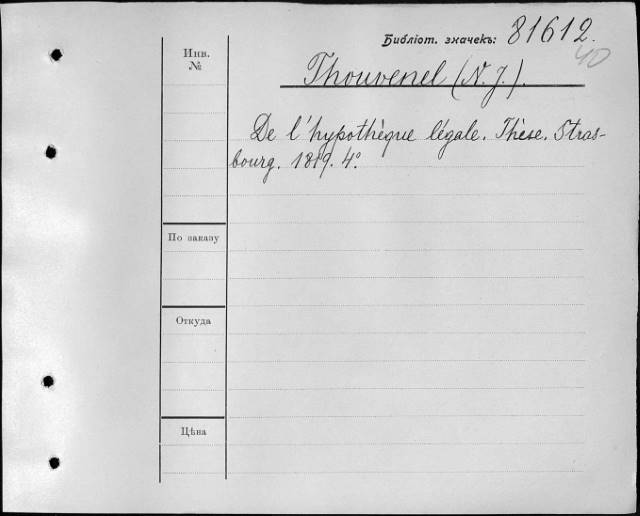 Библіот. значекъ: 81612.
40
Инв.
№
Thouvenel (N. J.).
De l'hypothèque légale. Thèse. Stras-
bourg. 1819. 4°.
По заказу
Откуда
Цѣна